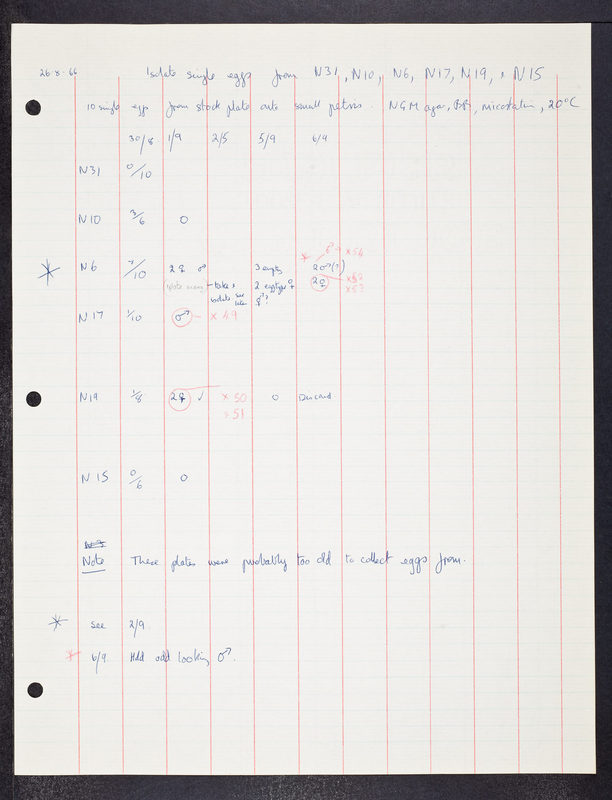 26·8·66 Isolate single eggs from N31, N10, N6, N17, N19, & N15
10 single eggs from stock plate onto small petris. NGM agar, nicostatin, 20°C
30/8 1/9 2/9 5/9 6/9
N31 0/10
N10 3/6 0
* ♂ × 54
N6 /10 2 ⚥ ♂ 3 empty 2♂(?)
2 eggtype 2⚥ × 52
isolate see later ♂? × 53
N17 1/10 ♂ - × 49
N19 1/8 2⚥ ✓ × 50 0 Discard.
× 51
N15 0/6 0
Note These plates were probably too old to collect eggs from.
* see 2/9.
* 6/9. odd looking ♂.